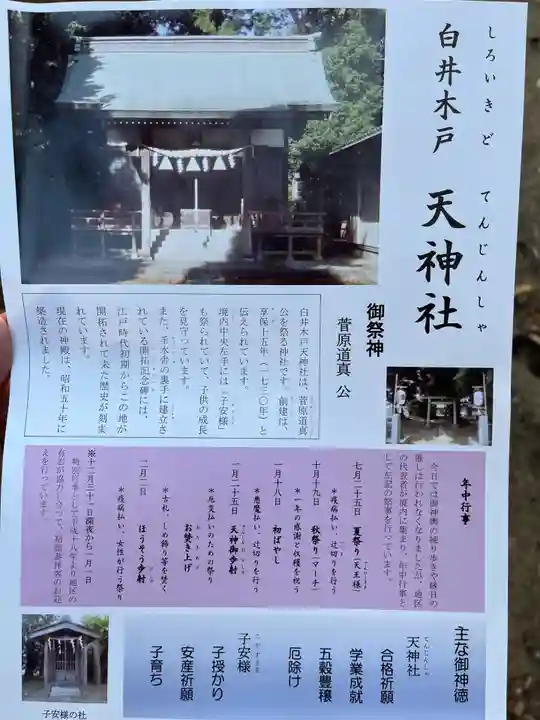 しろいきど てんじんしゃ
白井木戸 天神社
御祭神
菅原道真 公
白井木戸天神社は、菅原道真
公を祭る神社です。創建は、
享保十五年(一七三〇年)と
伝えられています。
境内中央左手には「子安様」
も祭られていて、子供の成長
を見守っています。
また、手水舎の裏手に建立さ
れている開拓記念碑には、
江戸時代初期からこの地が
開拓されて来た歴史が刻ま
れています。
現在の神殿は、昭和五十年に
築造されました。
年中行事
今日では御神輿の練り歩きや縁日の
催しは行われなくなりましたが、地区
の代表者が境内に集まり、年中行事と
して左記の祭事を行っています。
七月二十五日 夏祭り(天王様)
*疫病払い、辻切りを行う
十月十九日 秋祭り(マーチ)
*一年の感謝と収穫を祝う
一月十八日 初ばやし
*悪魔払い、辻切りを行う
一月二十五日 天神御歩射
*厄災払いのための祭り
お焚き上げ
*古札、しめ飾り等を焚く
二月二日 ほうそう歩射
*疫病払い、女性が行う祭り
※十二月三十一日深夜から一月一日
特別行事として平成十八年より地区の
有志が協力し合って、初詣参拝客のお迎
えを行っています。
主な御神徳
てんじんしゃ
天神社
合格祈願
学業成就
五穀豊穣
厄除け
こやすさま
子安様
子授かり
安産祈願
子育ち
子安様の社